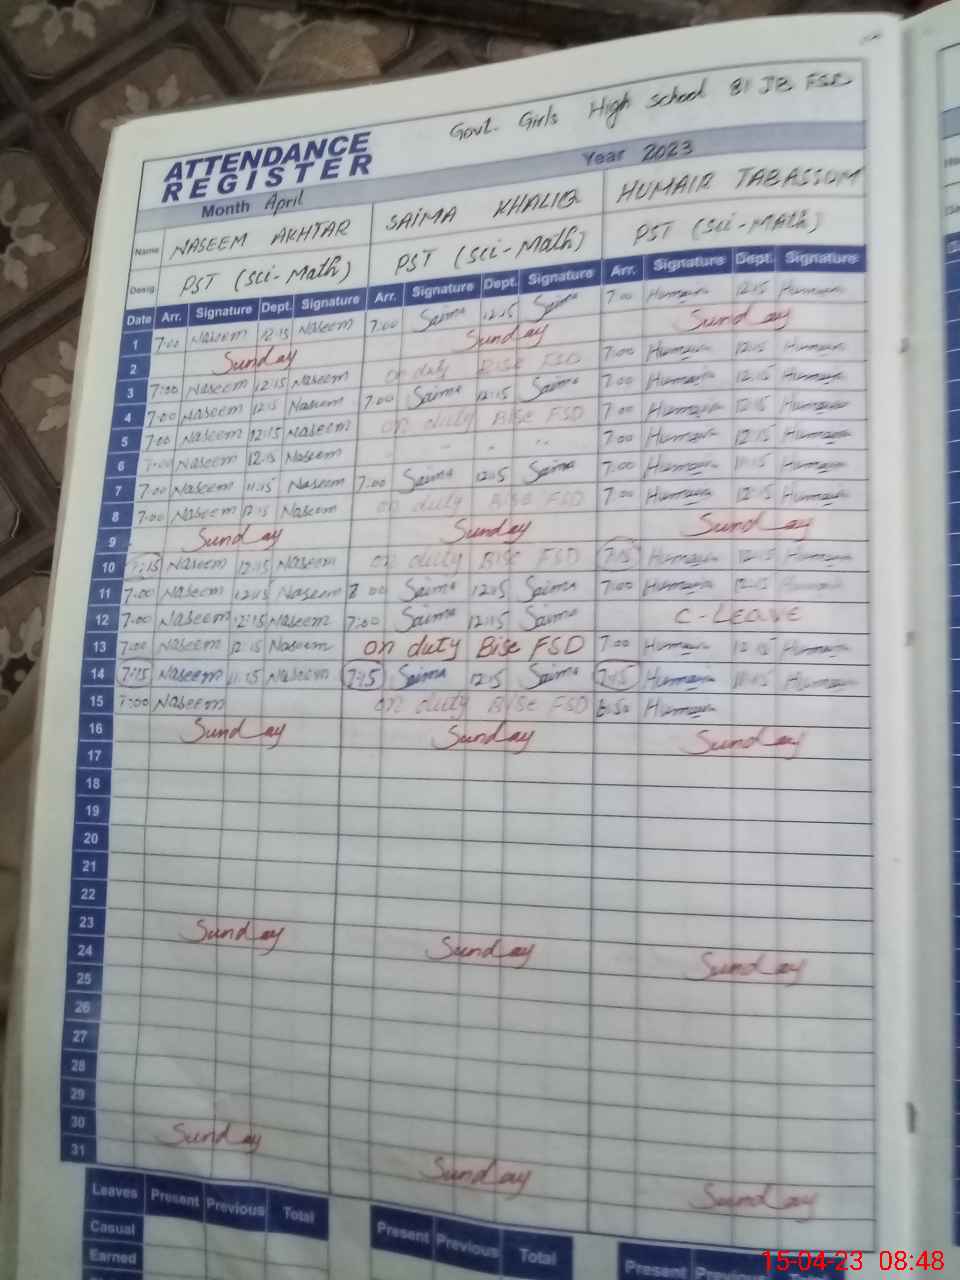 Govt. Girls High School 81 JB FSD
ATTENDANCE
REGISTER
Month April Year 2023
Name NASEEM AKHTAR SAIMA KHALIQ HUMAIR TABASSUM
Desig. PST (Sci-Math) PST (Sci-Math) PST (Sci-Math)
Date Arr. Signature Dept. Signature Arr. Signature Dept. Signature Arr. Signature Dept. Signature
1 7:00 Naseem 12:15 Naseem 7:00 Saima 12:15 Saima 7:00 Humair 12:15 Humair
2 Sunday Sunday Sunday
3 7:00 Naseem 12:15 Naseem on duty Bise FSD 7:00 Humair 12:15 Humair
4 7:00 Naseem 12:15 Naseem 7:00 Saima 12:15 Saima 7:00 Humair 12:15 Humair
5 7:00 Naseem 12:15 Naseem on duty Bise FSD 7:00 Humair 12:15 Humair
6 7:00 Naseem 12:15 Naseem 7:00 Humair 12:15 Humair
7 7:00 Naseem 11:15 Naseem 7:00 Saima 12:15 Saima 7:00 Humair 11:15 Humair
8 7:00 Naseem 12:15 Naseem on duty Bise FSD 7:00 Humair 12:15 Humair
9 Sunday Sunday Sunday
10 7:15 Naseem 12:15 Naseem on duty Bise FSD 7:15 Humair 12:15 Humair
11 7:00 Naseem 12:15 Naseem 8 00 Saima 12:15 Saima 7:00 Humair 12:15 Humair
12 7:00 Naseem 12:15 Naseem 7:00 Saima 12:15 Saima C-LEAVE
13 7:00 Naseem 12:15 Naseem on duty Bise FSD 7:00 Humair 12:15 Humair
14 7:15 Naseem 11:15 Naseem 7:15 Saima 12:15 Saima 7:15 Humair 11:15 Humair
15 7:00 Naseem on duty Bise FSD 6:50 Humair
16 Sunday Sunday Sunday
17
18
19
20
21
22
23 Sunday Sunday Sunday
24
25
26
27
28
29
30 Sunday Sunday Sunday
31
Leaves Present Previous Total Present Previous Total Present
Casual
Earned
15-04-23 08:48